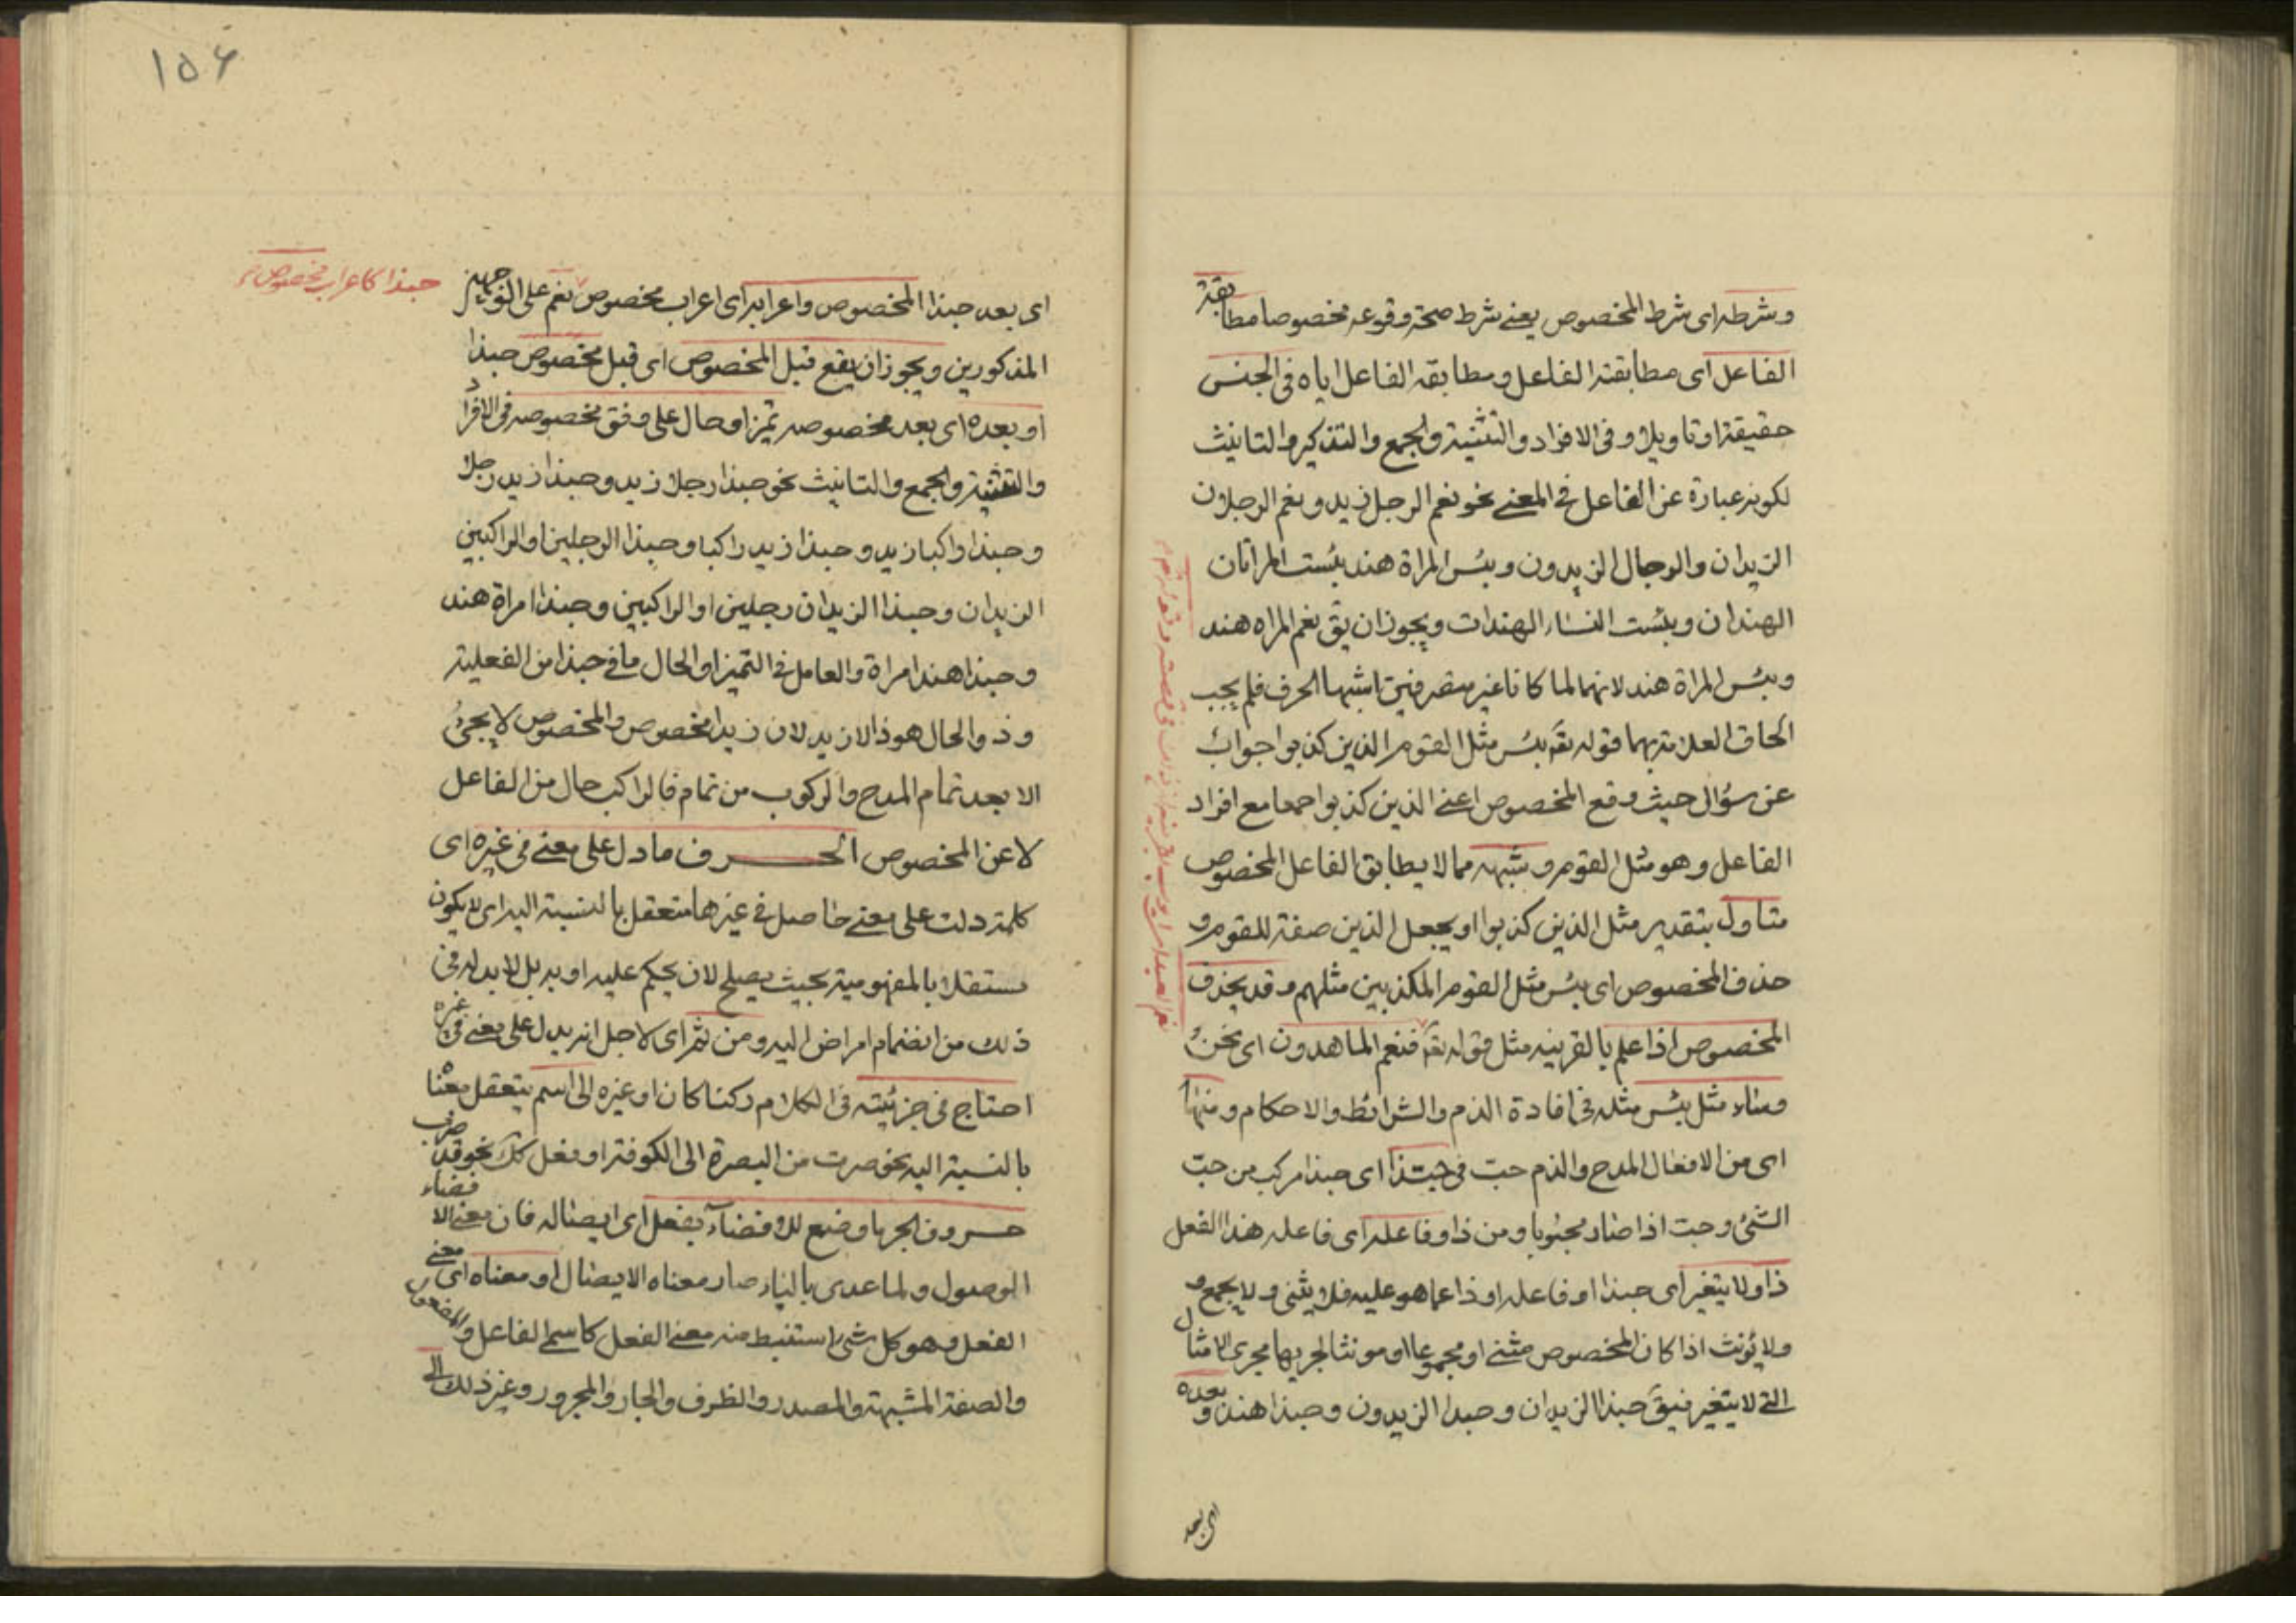 وشرطه اى شرط المخصوص يعنے شرط صحة وقوعه مخصوصا مطابقة
الفاعل اى مطابقته الفاعل ومطابقه الفاعل اياه فى الجنس
حقيقة او تاويلا و فى الافراد والتثنية والجمع والتذكير والتانيث
لكونه عبارة عن الفاعل فے المعنے نحو نعم الرجل زيد و نعم الرجلان
الزيدان والرجال الزيدون وبئس المراة هند بئست المراتان
الهندان وبئست النساء الهندات ويجوز ان يق نعم المراه هند
وبئس المراة هند لانهما لما كانا غير متصرفين اشبها الحرف فلم يجب
الحاق العلامة بهما قوله تقه بئس مثل القوم الذين كذبوا جواب
عن سؤال حيث وقع المخصوص اعنے الذين كذبوا جمعا مع افراد
الفاعل وهو مثل القوم وشبهه مما لا يطابق الفاعل المخصوص
متاول بتقدير مثل الذين كذبوا او يجعل الذين صفة للقوم و
حذف المخصوص اى بئس مثل القوم المكذبين مثلهم وقد يحذف
المخصوص اذا علم بالقرينه مثل قوله تقه فنعم الماهدون اى نحن
وساء مثل بئس مثله فى افادة الذم والشرائط والاحكام ومنها
اى من الافعال المدح والذم حب فى حبذا اى حبذا مركب من حب
الشئ وحبت اذا صار محبوبا ومن ذا وفاعله اى فاعله هذا الفعل
ذا ولا يتغير اى حبذا او فاعله او ذا عما هو عليه فلا يثنى ولا يجمع و
ولا يؤنث اذا كان المخصوص مثنے او مجموعا او مونثا لجريها مجرى الامثال
التے لا يتغير فيق حبذا الزيدان وحبذا الزيدون وحبذا هند و بعده
اى بعد
١٥۶
حبذا كاعراب مخصوص
اى بعد حبذا المخصوص واعرابه اى اعراب مخصوص نعم على الوجهين
المذكورين ويجوز ان يقع قبل المخصوص اى قبل مخصوص حبذا
او بعده اى بعد مخصوصه تميز او حال على وفق مخصوصه فى الافراد
والتثنية والجمع والتانيث نحو حبذا رجلا زيد وحبذا زيد رجلا
وحبذا راكبا زيد وحبذا زيد راكبا وحبذا الرجلين او الراكبين
الزيدان وحبذا الزيدان رجلين او الراكبين وحبذا امراة هند
وحبذا هند امراة والعامل فے التميز او الحال ما فے حبذا من الفعلية
وذو الحال هو ذا لا زيد لان زيدا مخصوص والمخصوص لا يجئ
الا بعد تمام المدح والركوب من تمام فالراكب حال من الفاعل
لا عن المخصوص الحرف ما دل على معنے فى غيره اى
كلمة دلت على معنے حاصل فے غيرها متعقل بالنسبة اليه اى لا يكون
مستقلا بالمفهومية بحيث يصلح لان يحكم عليه او به بل لا بد له فى
ذلك من انضمام امراض اليه ومن ثم اى لاجل انه يدل على معنے فى غيره
احتاج فى جزئيته فى الكلام ركنا كان او غيره الى اسم يتعقل معناه
بالنسبة اليه نحو صرت من البصرة الى الكوفة او فعل كك نحو قد ضرب
حروف الجر ما وضع للافضاء بفعل اى ايصاله فان معنے الافضاء
الوصول ولما عدى بالباء صار معناه الايصال او معناه اى معنے
الفعل وهو كل شئ استنبط منه معنے الفعل كاسم الفاعل والمفعول
والصفة المشبهة والمصدر والظرف والجار والمجرور وغير ذلك الى